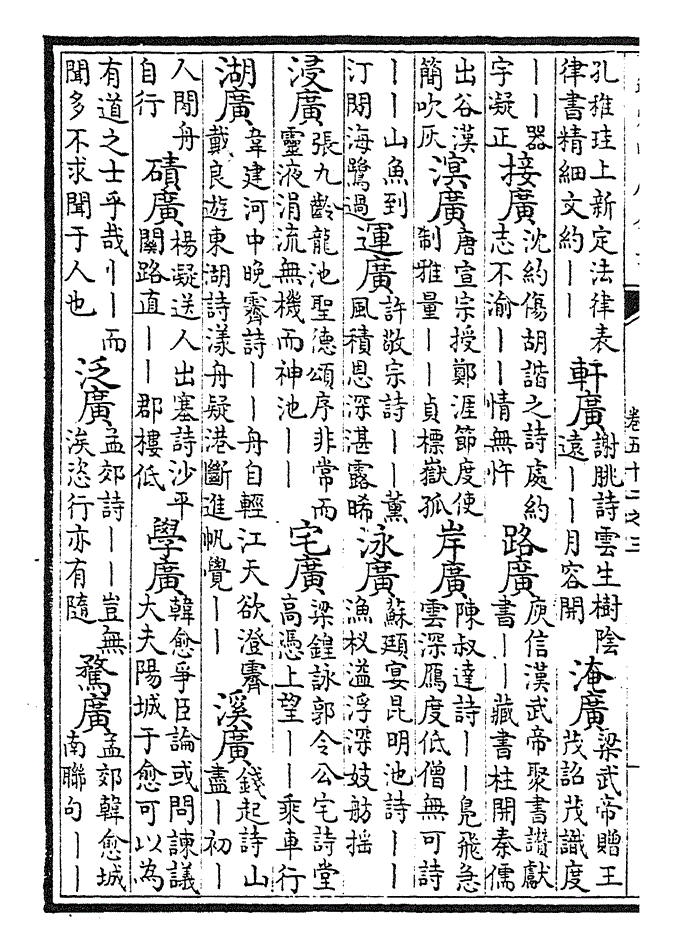 卷五十二之三
孔稚珪上新定法律表
律書精細文約——
軒廣
謝朓詩雲生樹陰
遠——月容開
淹廣
梁武帝贈王
茂詔茂識度
——器
字凝正
接廣
沈約傷胡諧之詩處約
志不渝——情無忤
路廣
庾信漢武帝聚書讃獻
書——藏書柱開秦儒
出谷漢
簡吹灰
溟廣
唐宣宗授鄭涯節度使
制雅量——貞標嶽孤
岸廣
陳叔達詩——鳧飛急
雲深鴈度低僧無可詩
——山魚到
汀閒海鷺過
運廣
許敬宗詩——薰
風積恩深湛露晞
泳廣
蘇頲宴昆明池詩——
漁杈溢浮深妓舫摇
浸廣
張九齡龍池聖德頌序非常而
靈液涓流無機而神池——
宅廣
梁鍠詠郭令公宅詩堂
高憑上望——乘車行
湖廣
韋建河中晚霽詩——舟自輕江天欲澄霽
戴良遊東湖詩漾舟疑港斷進帆覺——
溪廣
錢起詩山
盡—初—
人閒舟
自行
磧廣
楊凝送人出塞詩沙平
關路直——郡樓低
學廣
韓愈爭臣論或問諫議
大夫陽城于愈可以為
有道之士乎哉——而
聞多不求聞于人也
泛廣
孟郊詩——豈無
涘恣行亦有隨
騖廣
孟郊韓愈城
南聯句——